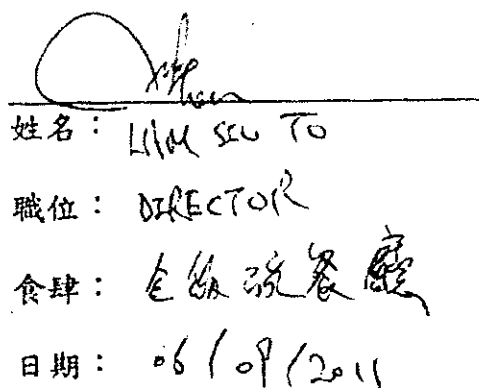 姓名：LAM SIU TO
職位：DIRECTOR
食肆：餐廳
日期：06/09/2011